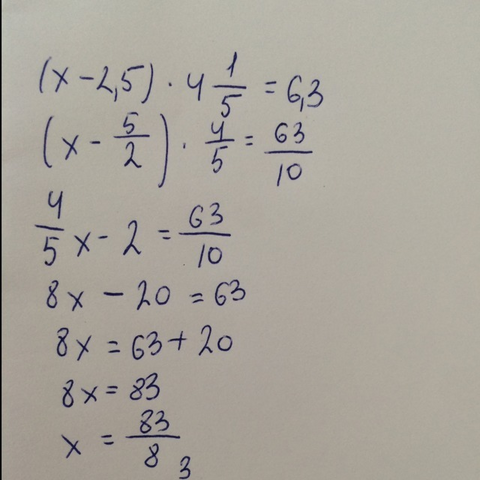 (x - 2,5) · 4 1/5 = 6,3
(x - 5/2) · 4/5 = 63/10
4/5 x - 2 = 63/10
8x - 20 = 63
8x = 63 + 20
8x = 83
x = 83/8
3